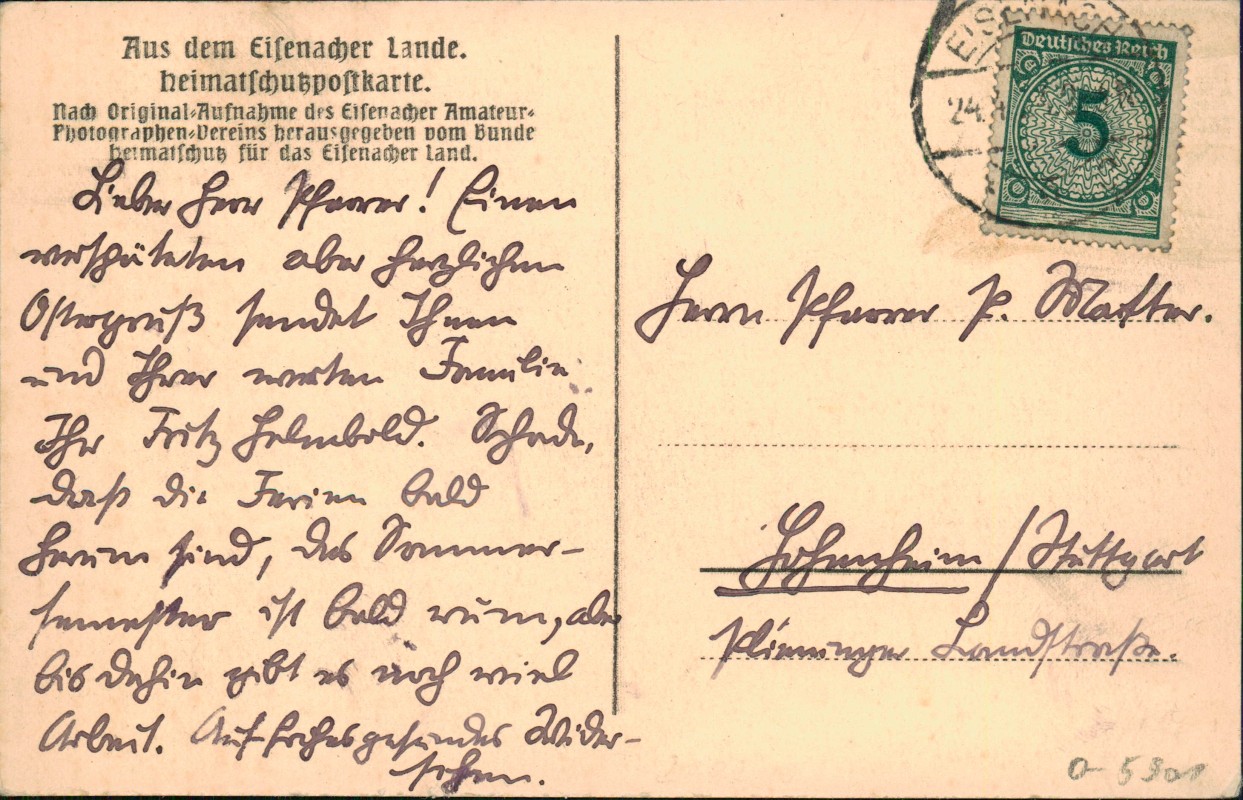 Aus dem Eisenacher Lande.
Heimatschutzpostkarte.
Nach Original-Aufnahme des Eisenacher Amateur-
Photographen-Vereins herausgegeben vom Bunde
Heimatschutz für das Eisenacher Land.
Lieber Herr Pfarrer! Einen
verspäteten aber herzlichen
Ostergruß sendet Ihnen
und Ihrer werten Familie
Ihr Fritz Helmbold. Schade,
daß die Ferien bald
herum sind, das Sommer-
semester ist bald rum, aber
bis dahin gibt es noch viel
Arbeit. Auf frohes gesundes Wieder-
sehen.
EISENACH
24.4
Deutsches Reich
5
Herrn Pfarrer P. Matter.
Hohenheim / Stuttgart
Plieninger Landstraße.
0-5901